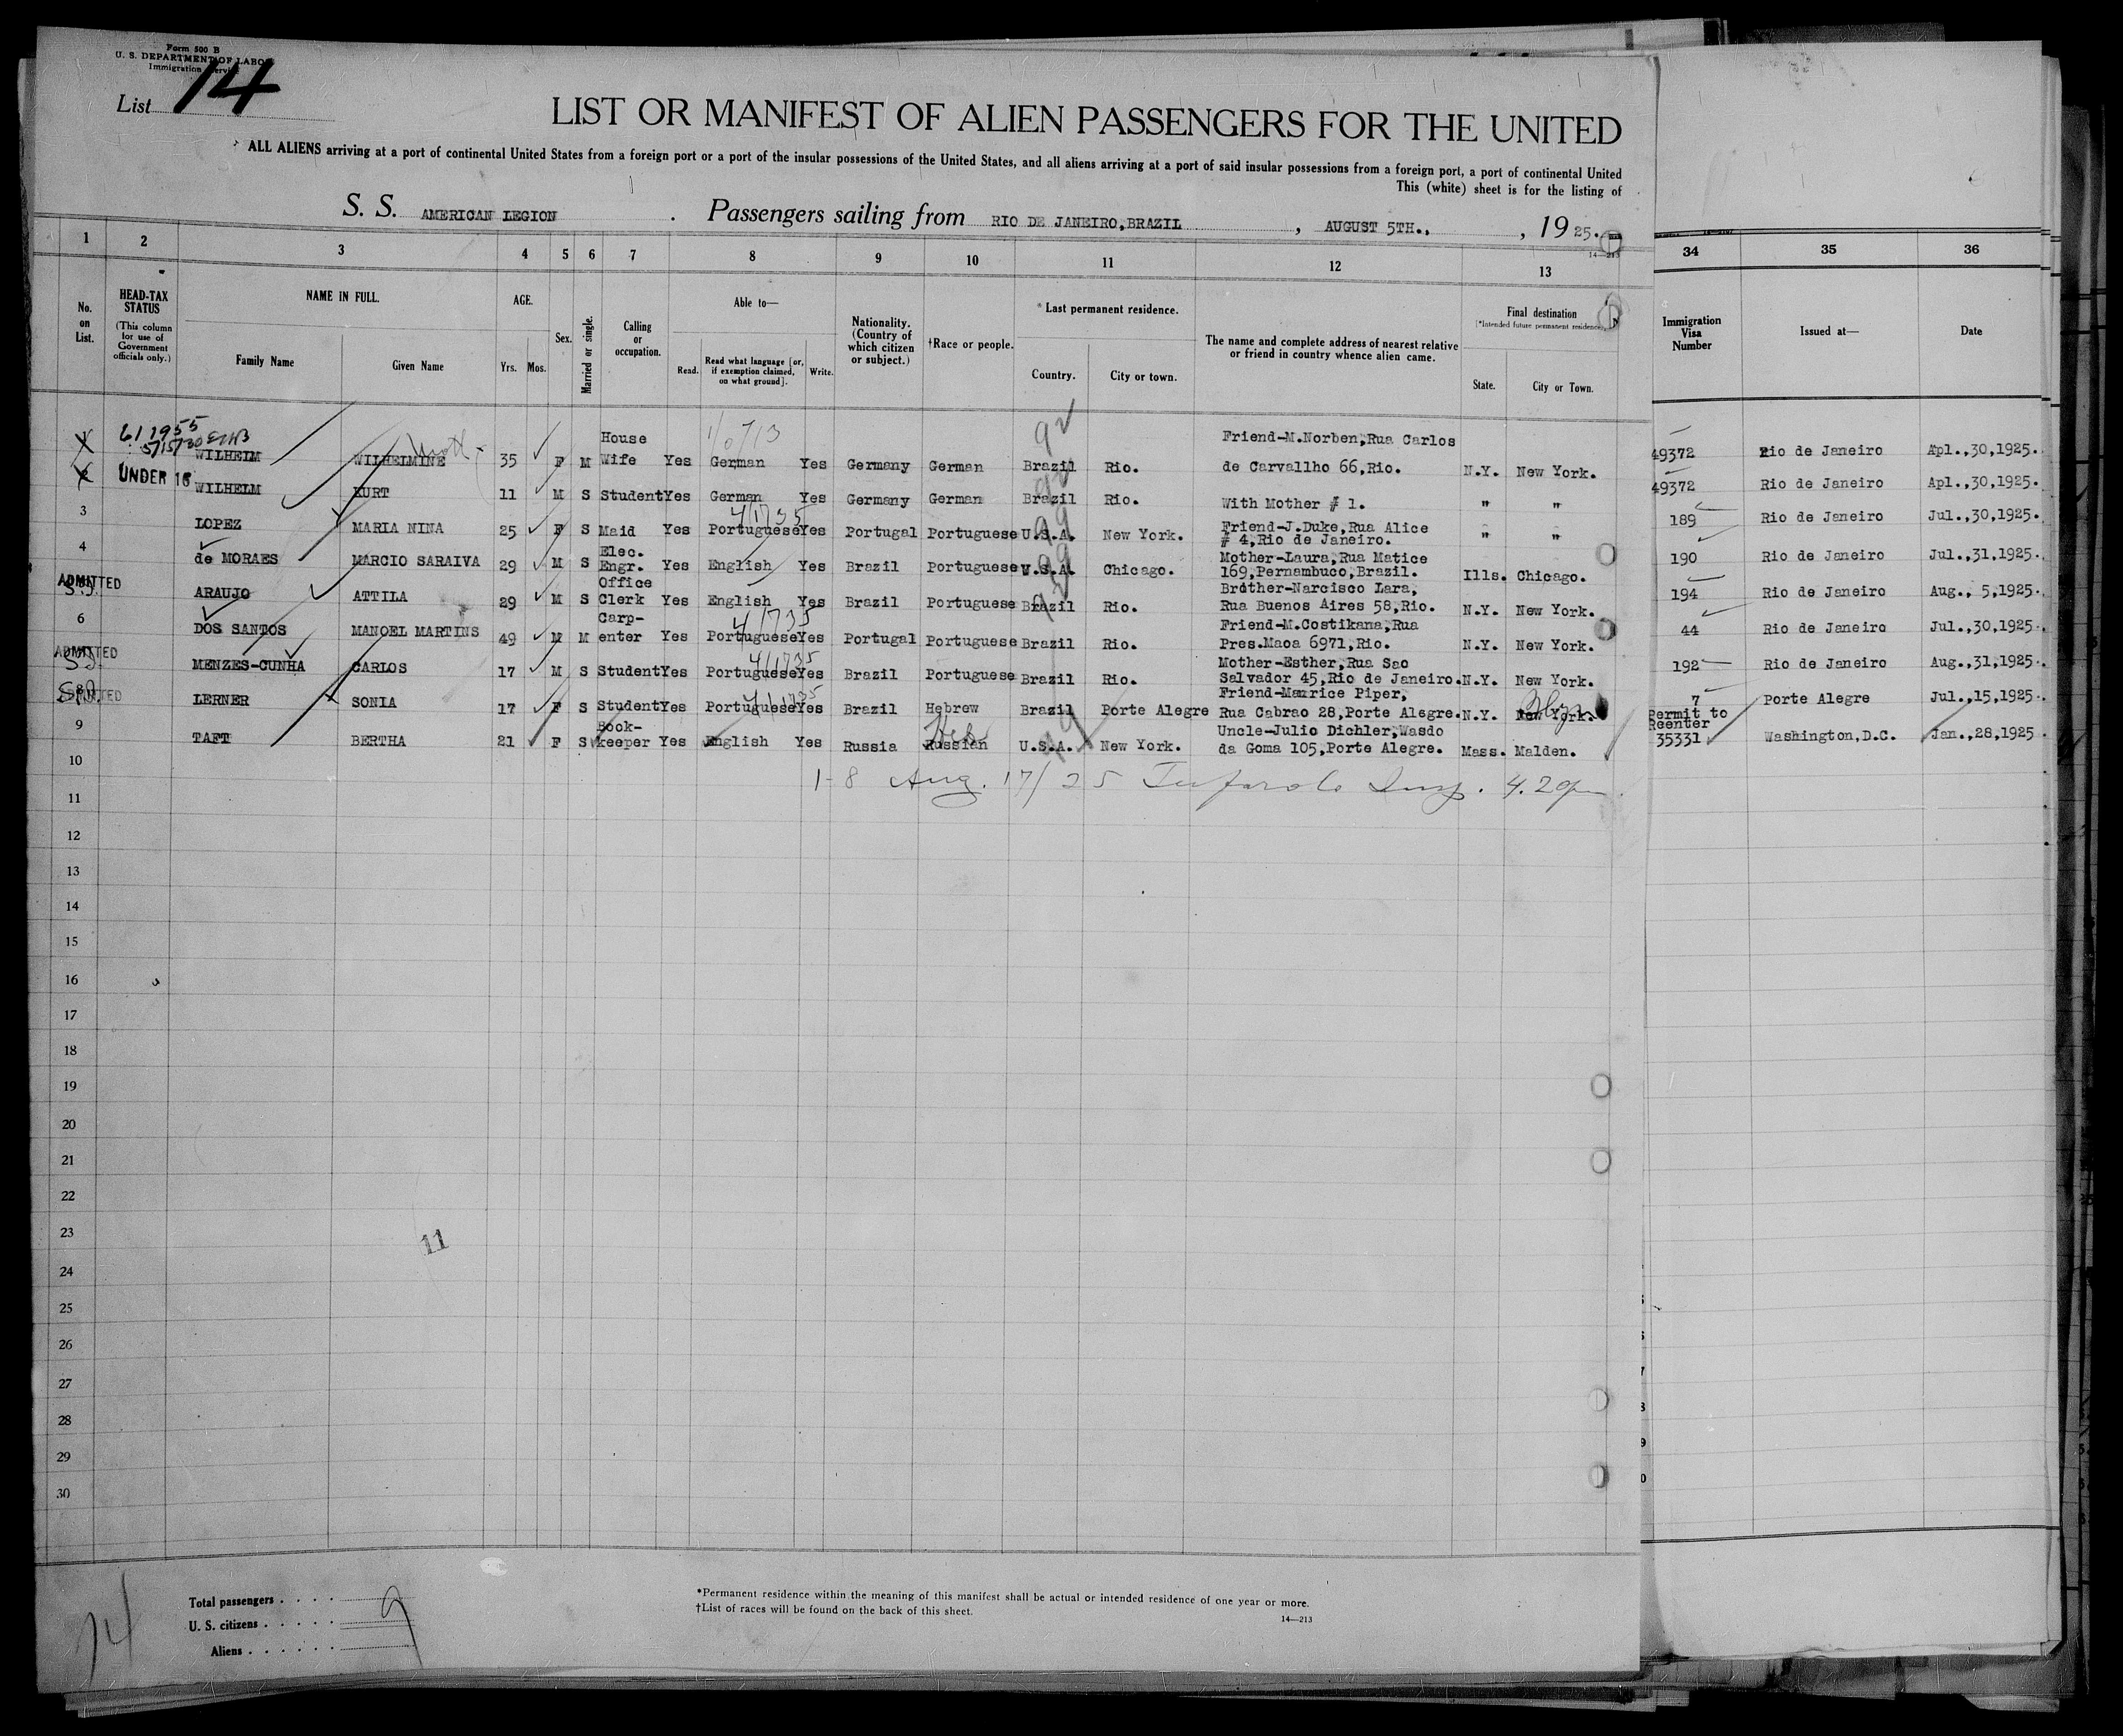 Form 500 B
U. S. DEPARTMENT OF LABOR
Immigration Service
List 14
LIST OR MANIFEST OF ALIEN PASSENGERS FOR THE UNITED
ALL ALIENS arriving at a port of continental United States from a foreign port or a port of the insular possessions of the United States, and all aliens arriving at a port of said insular possessions from a foreign port, a port of continental United
This (white) sheet is for the listing of
S. S. AMERICAN LEGION . Passengers sailing from RIO DE JANEIRO,BRAZIL , AUGUST 5TH., , 1925.
14—213
1 2 3 4 5 6 7 8 9 10 11 12 13 34 35 36
No. on List.
HEAD-TAX STATUS
(This column for use of Government officials only.)
NAME IN FULL.
Family Name
Given Name
AGE.
Yrs. Mos.
Sex.
Married or single.
Calling or occupation.
Able to—
Read.
Read what language [or, if exemption claimed, on what ground].
Write.
Nationality. (Country of which citizen or subject.)
†Race or people.
*Last permanent residence.
Country.
City or town.
The name and complete address of nearest relative or friend in country whence alien came.
Final destination
(*Intended future permanent residence)
State.
City or Town.
Immigration Visa Number
Issued at—
Date
611955
5/15/30
1 WILHELM WILHELMINE 35 F M House Wife Yes German Yes Germany German Brazil Rio. Friend-M.Norben,Rua Carlos de Carvallho 66,Rio. N.Y. New York. 49372 Rio de Janeiro Apl.,30,1925.
2 UNDER 16 WILHELM KURT 11 M S Student Yes German Yes Germany German Brazil Rio. With Mother # 1. " " 49372 Rio de Janeiro Apl.,30,1925.
3 LOPEZ MARIA NINA 25 F S Maid Yes Portuguese Yes Portugal Portuguese U.S.A. New York. Friend-J.Duke,Rua Alice # 4,Rio de Janeiro. " " 189 Rio de Janeiro Jul.,30,1925.
4 de MORAES MARCIO SARAIVA 29 M S Elec. Engr. Yes English Yes Brazil Portuguese U.S.A. Chicago. Mother-Laura,Rua Matice 169,Pernambuco,Brazil. Ills. Chicago. 190 Rio de Janeiro Jul.,31,1925.
ADMITTED S.I. ARAUJO ATTILA 29 M S Office Clerk Yes English Yes Brazil Portuguese Brazil Rio. Brother-Narcisco Lara, Rua Buenos Aires 58,Rio. N.Y. New York. 194 Rio de Janeiro Aug., 5,1925.
6 DOS SANTOS MANOEL MARTINS 49 M M Carp- enter Yes Portuguese Yes Portugal Portuguese Brazil Rio. Friend-M.Costikana,Rua Pres.Maoa 6971,Rio. N.Y. New York. 44 Rio de Janeiro Jul.,30,1925.
ADMITTED S.I. MENZES-CUNHA CARLOS 17 M S Student Yes Portuguese Yes Brazil Portuguese Brazil Rio. Mother-Esther,Rua Sao Salvador 45,Rio de Janeiro. N.Y. New York. 192 Rio de Janeiro Aug.,31,1925.
ADMITTED S.I. LERNER SONIA 17 F S Student Yes Portuguese Yes Brazil Hebrew Brazil Porte Alegre Friend-Maurice Piper, Rua Cabrao 28,Porte Alegre. N.Y. New York. 7 Porte Alegre Jul.,15,1925.
9 TAFT BERTHA 21 F S Book- keeper Yes English Yes Russia Russian Heb. U.S.A. New York. Uncle-Julio Dichler,Wasdo da Goma 105,Porte Alegre. Mass. Malden. Permit to Reenter 35331 Washington,D.C. Jan.,28,1925.
10
1-8 Aug. 17/25 Insp. 4.29pm
11
12
13
14
15
16
17
18
19
20
21
22
23
11
24
25
26
27
28
29
30
14
Total passengers . . . . 9
U. S. citizens . . . . .
Aliens . . . . . .
*Permanent residence within the meaning of this manifest shall be actual or intended residence of one year or more.
†List of races will be found on the back of this sheet.
14—213